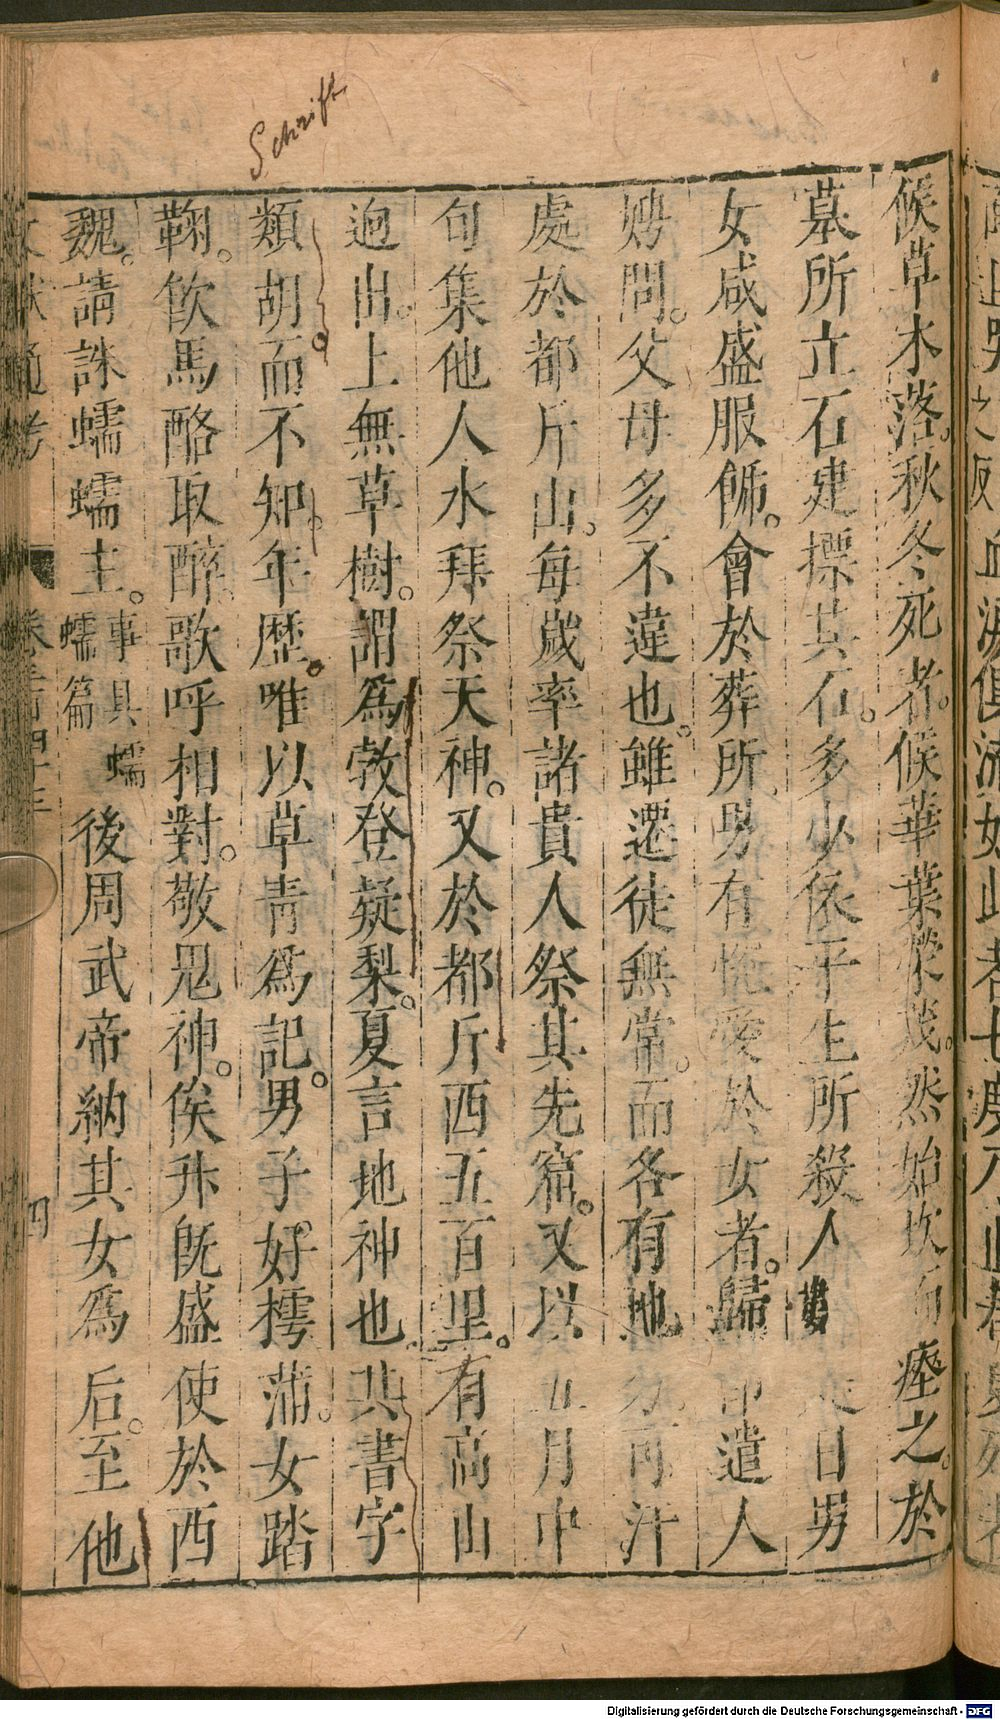 Schrift
候草木落。秋冬死者。候華葉榮茂。然始坎而瘞之。於
墓所立石建標其石。多少依平生所殺人數 是日男
女咸盛服飾。會於葬所男有悅愛於女者。歸即遣人
娉問。父母多不違也。雖遷徙無常。而各有地分可汗
處於都斤山。每歲率諸貴人祭其先窟。又以五月中
旬集他人水拜祭天神。又於都斤西五百里。有高山
逈出。上無草樹。謂爲敦登凝梨。夏言地神也其書字
類胡。而不知。年歷。唯以草青爲記。男子好樗蒲。女踏
鞠。飲馬酪取醉。歌呼相對。敬鬼神。俟斤旣盛使於西
魏。請誅蠕蠕主。事具蠕蠕篇後周武帝納其女爲后。至他
文獻通考 卷三百四十三 四
血淚俱流如此者七度
Digitalisierung gefördert durch die Deutsche Forschungsgemeinschaft - DFG